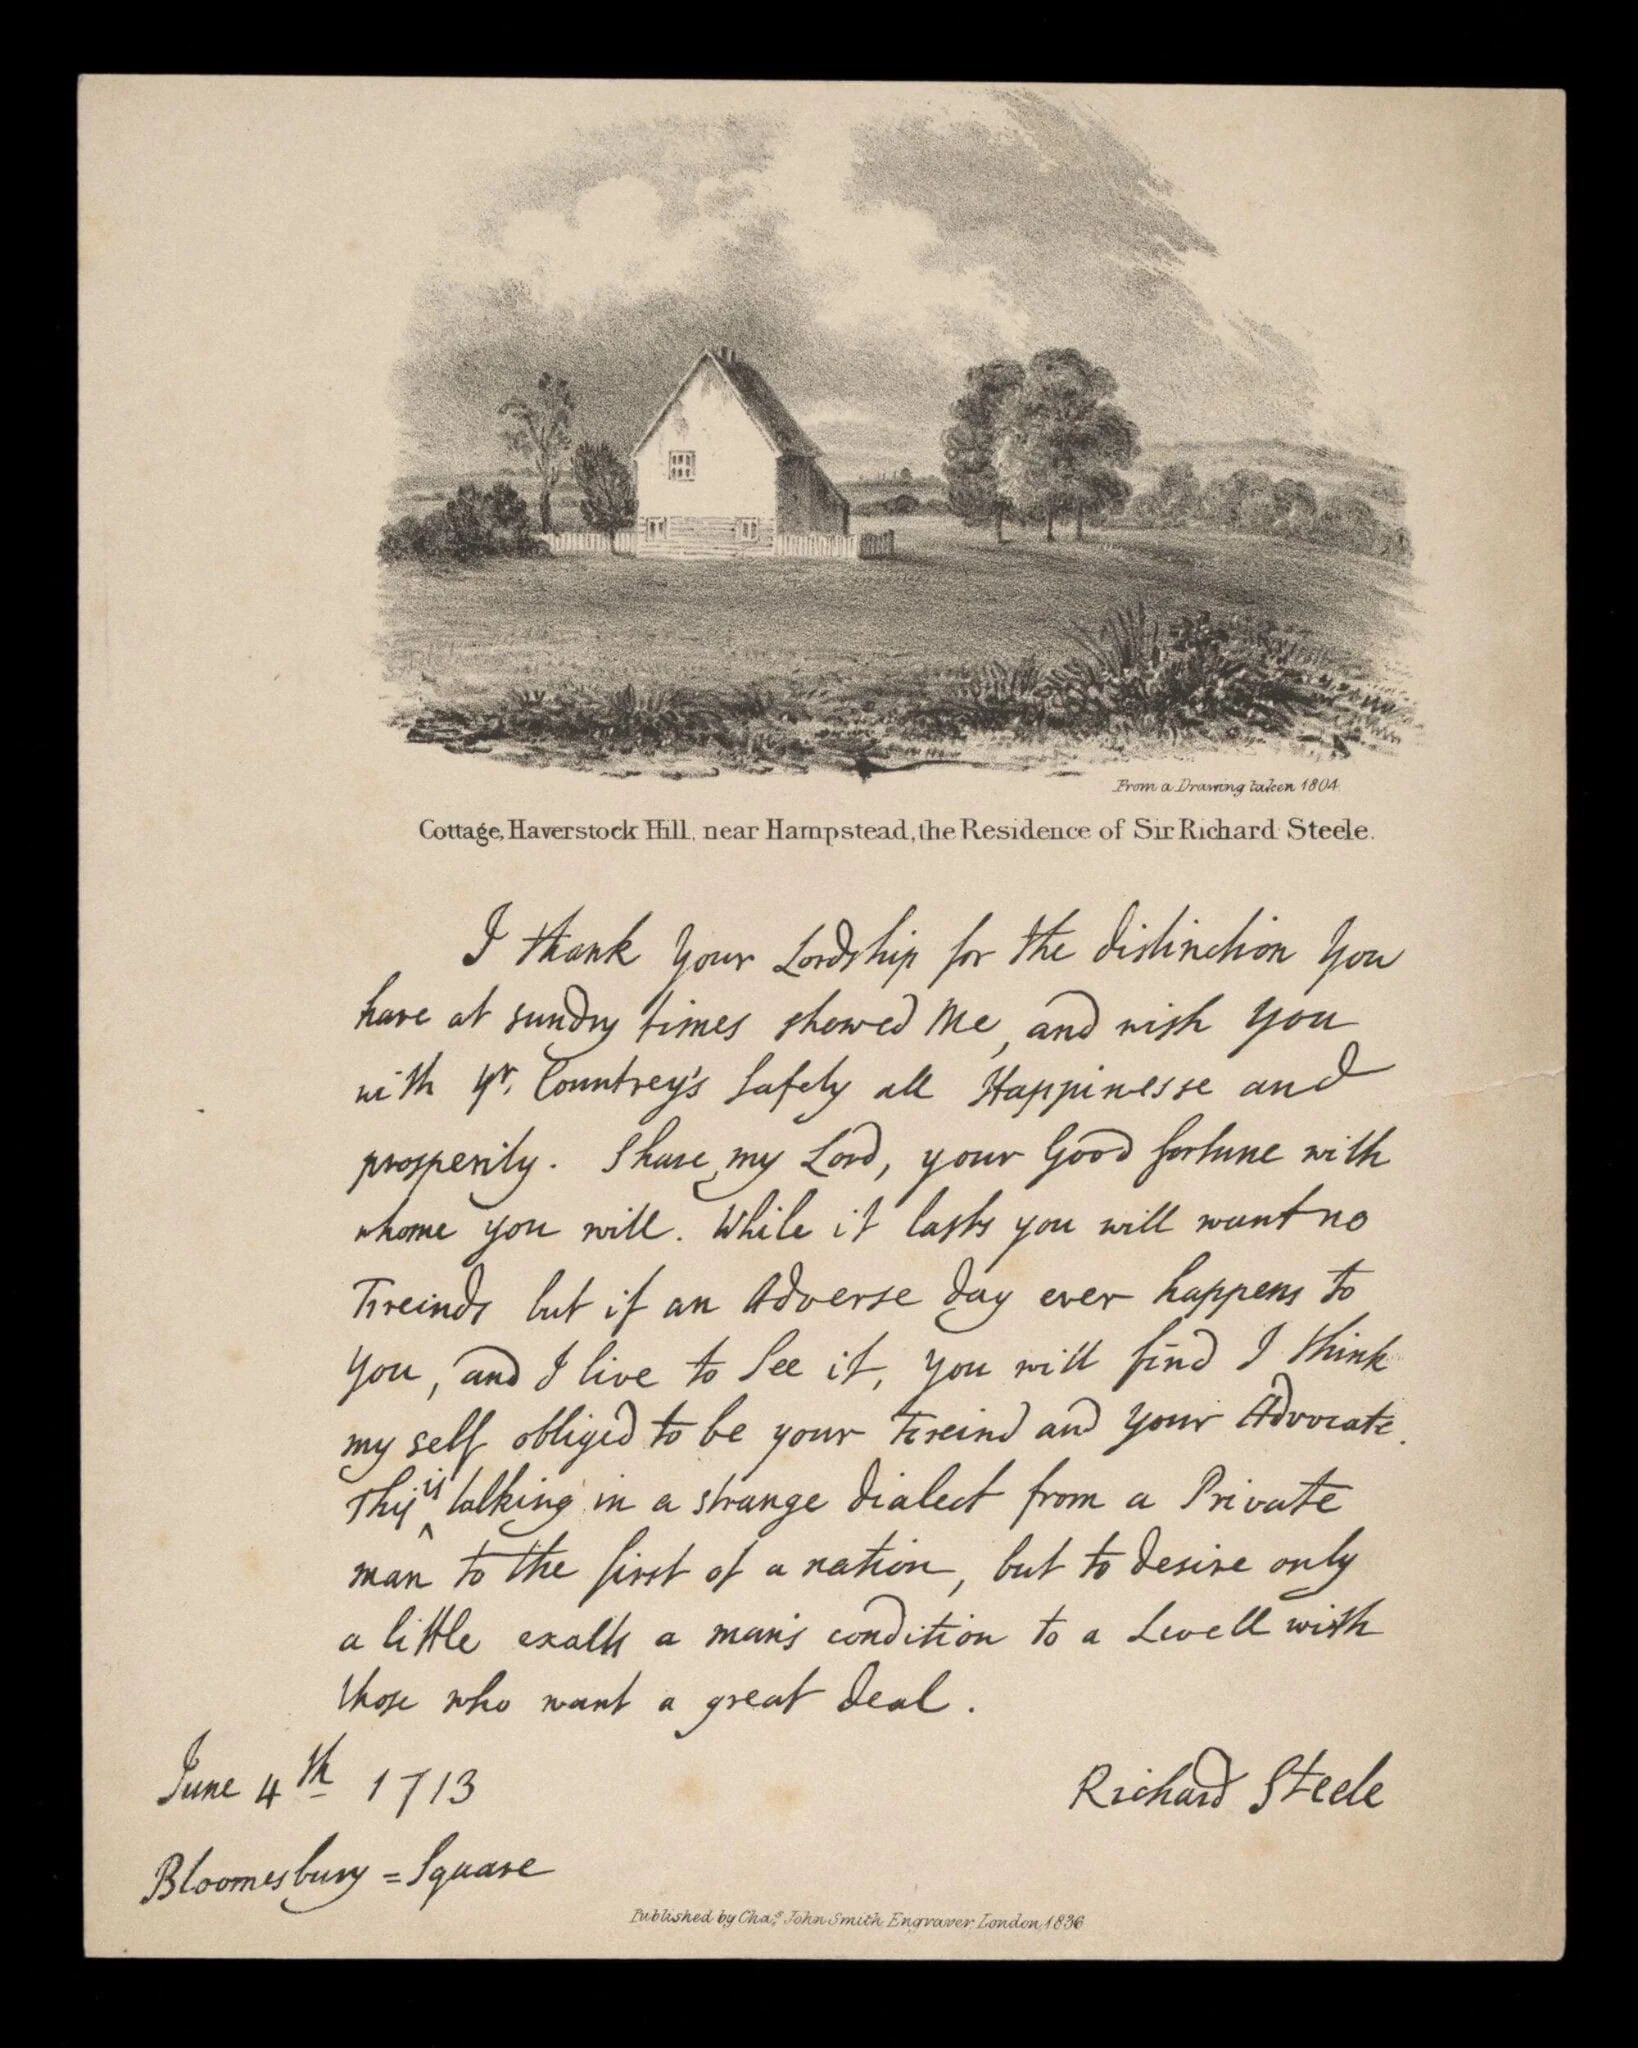 From a Drawing taken 1804.
Cottage, Haverstock Hill, near Hampstead, the Residence of Sir Richard Steele.
I thank Your Lordship for the distinction You
have at sundry times showed Me, and wish You
with yr. Countrey's Safety all Happinesse and
prosperity. Share, my Lord, your Good fortune with
whome you will. While it lasts you will want no
Freinds but if an Adverse day ever happens to
You, and I live to See it, you will find I think
my self obliged to be your Freind and Your Advocate.
This is talking in a strange dialect from a Private
man to the first of a nation, but to desire only
a little exalts a man's condition to a Levell with
those who want a great deal.
June 4th 1713
Richard Steele
Bloomesbury = Square
Published by Chas. John Smith, Engraver, London, 1836